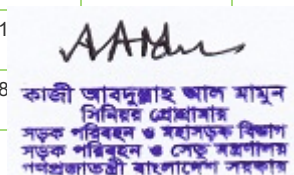 1
8
কাজী আবদুল্লাহ আল মামুন
সিনিয়র প্রোগ্রামার
সড়ক পরিবহন ও মহাসড়ক বিভাগ
সড়ক পরিবহন ও সেতু মন্ত্রণালয়
গণপ্রজাতন্ত্রী বাংলাদেশ সরকার